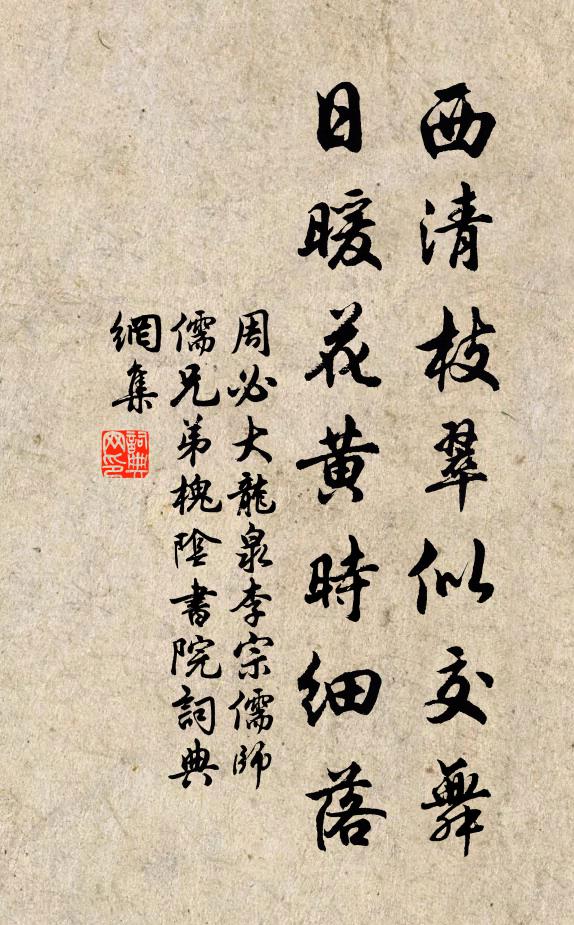 西清枝翠似交舞
日暖花黄時細落
周必大龍泉李宗儒師
儒兄弟槐陰書院詞典
網集
詞典
网印